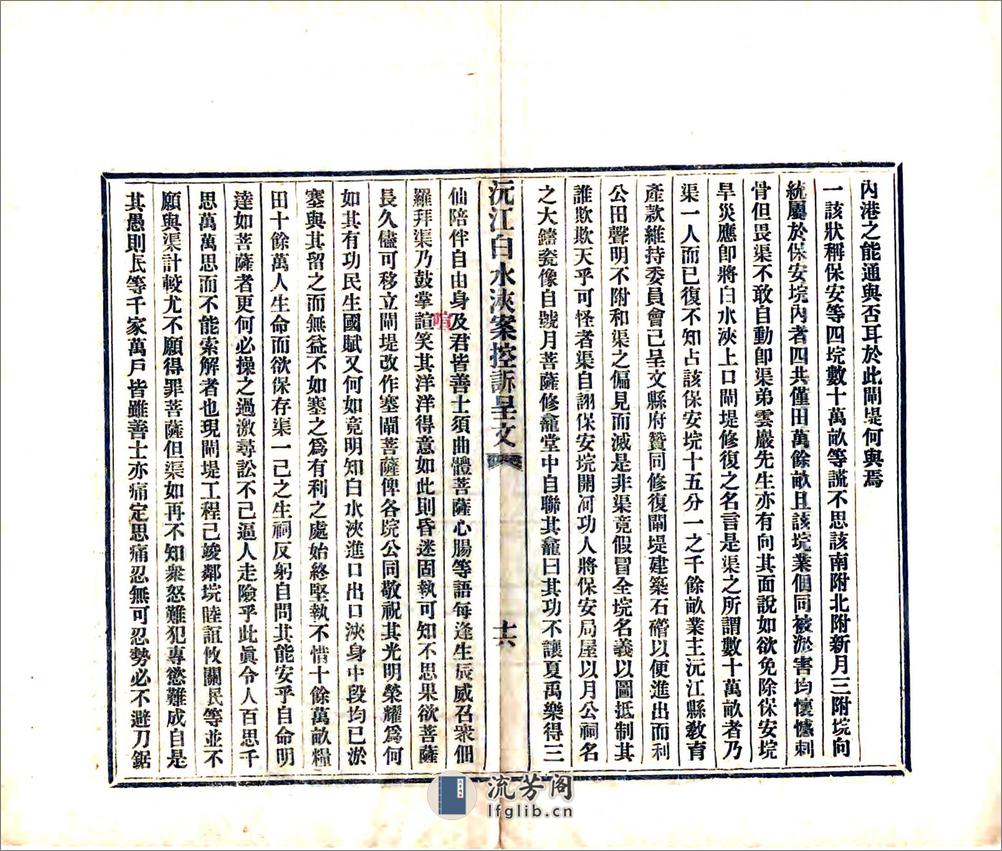 內港之能通與否耳於此閘堤何與焉
一該狀稱保安等四垸數十萬畝等謊不思該南附北附新月三附垸向
統屬於保安垸內者四共僅田萬餘畝且該垸業佃同被淤害均懷憾刺
骨但畏渠不敢自動卽渠弟雲巖先生亦有向其面說如欲免除保安垸
旱災應卽將白水浹上口閘堤修復之名言是渠之所謂數十萬畝者乃
渠一人而已復不知占該保安垸十五分一之千餘畝業主沅江縣敎育
產款維持委員會已呈文縣府贊同修復閘堤建築石磡以便進出而利
公田聲明不附和渠之偏見而滅是非渠竟假冒全垸名義以圖抵制其
誰欺欺天乎可怪者渠自詡保安垸開河功人將保安局屋以月公祠名
之大鐥瓷像自號月菩薩修龕堂中自聯其龕曰其功不讓夏禹樂得三
沅江白水浹案控訴呈文
十六
仙陪伴自由身及君皆善士須曲體菩薩心腸等語每逢生辰威召衆佃
羅拜渠乃鼓掌諠笑其洋洋得意如此則昏迷固執可知不思果欲菩薩
喧
長久儘可移立閘堤改作塞閘菩薩俾各垸公同敬祝其光明榮耀爲何
如其有功民生國賦又何如竟明知白水浹進口出口浹身中段均已淤
塞與其留之而無益不如塞之爲有利之處始終堅執不惜十餘萬畝糧
田十餘萬人生命而欲保存渠一己之生祠反躬自問其能安乎自命明
達如菩薩者更何必操之過激尋訟不己逼人走險乎此眞令人百思千
思萬萬思而不能索解者也現閘堤工程己竣鄰垸睦誼攸關民等並不
願與渠計較尤不願得罪菩薩但渠如再不知衆怒難犯專慾難成自是
其愚則民等千家萬戶皆雖善士亦痛定思痛忍無可忍勢必不避刀鋸
流芳阁
lfglib.cn